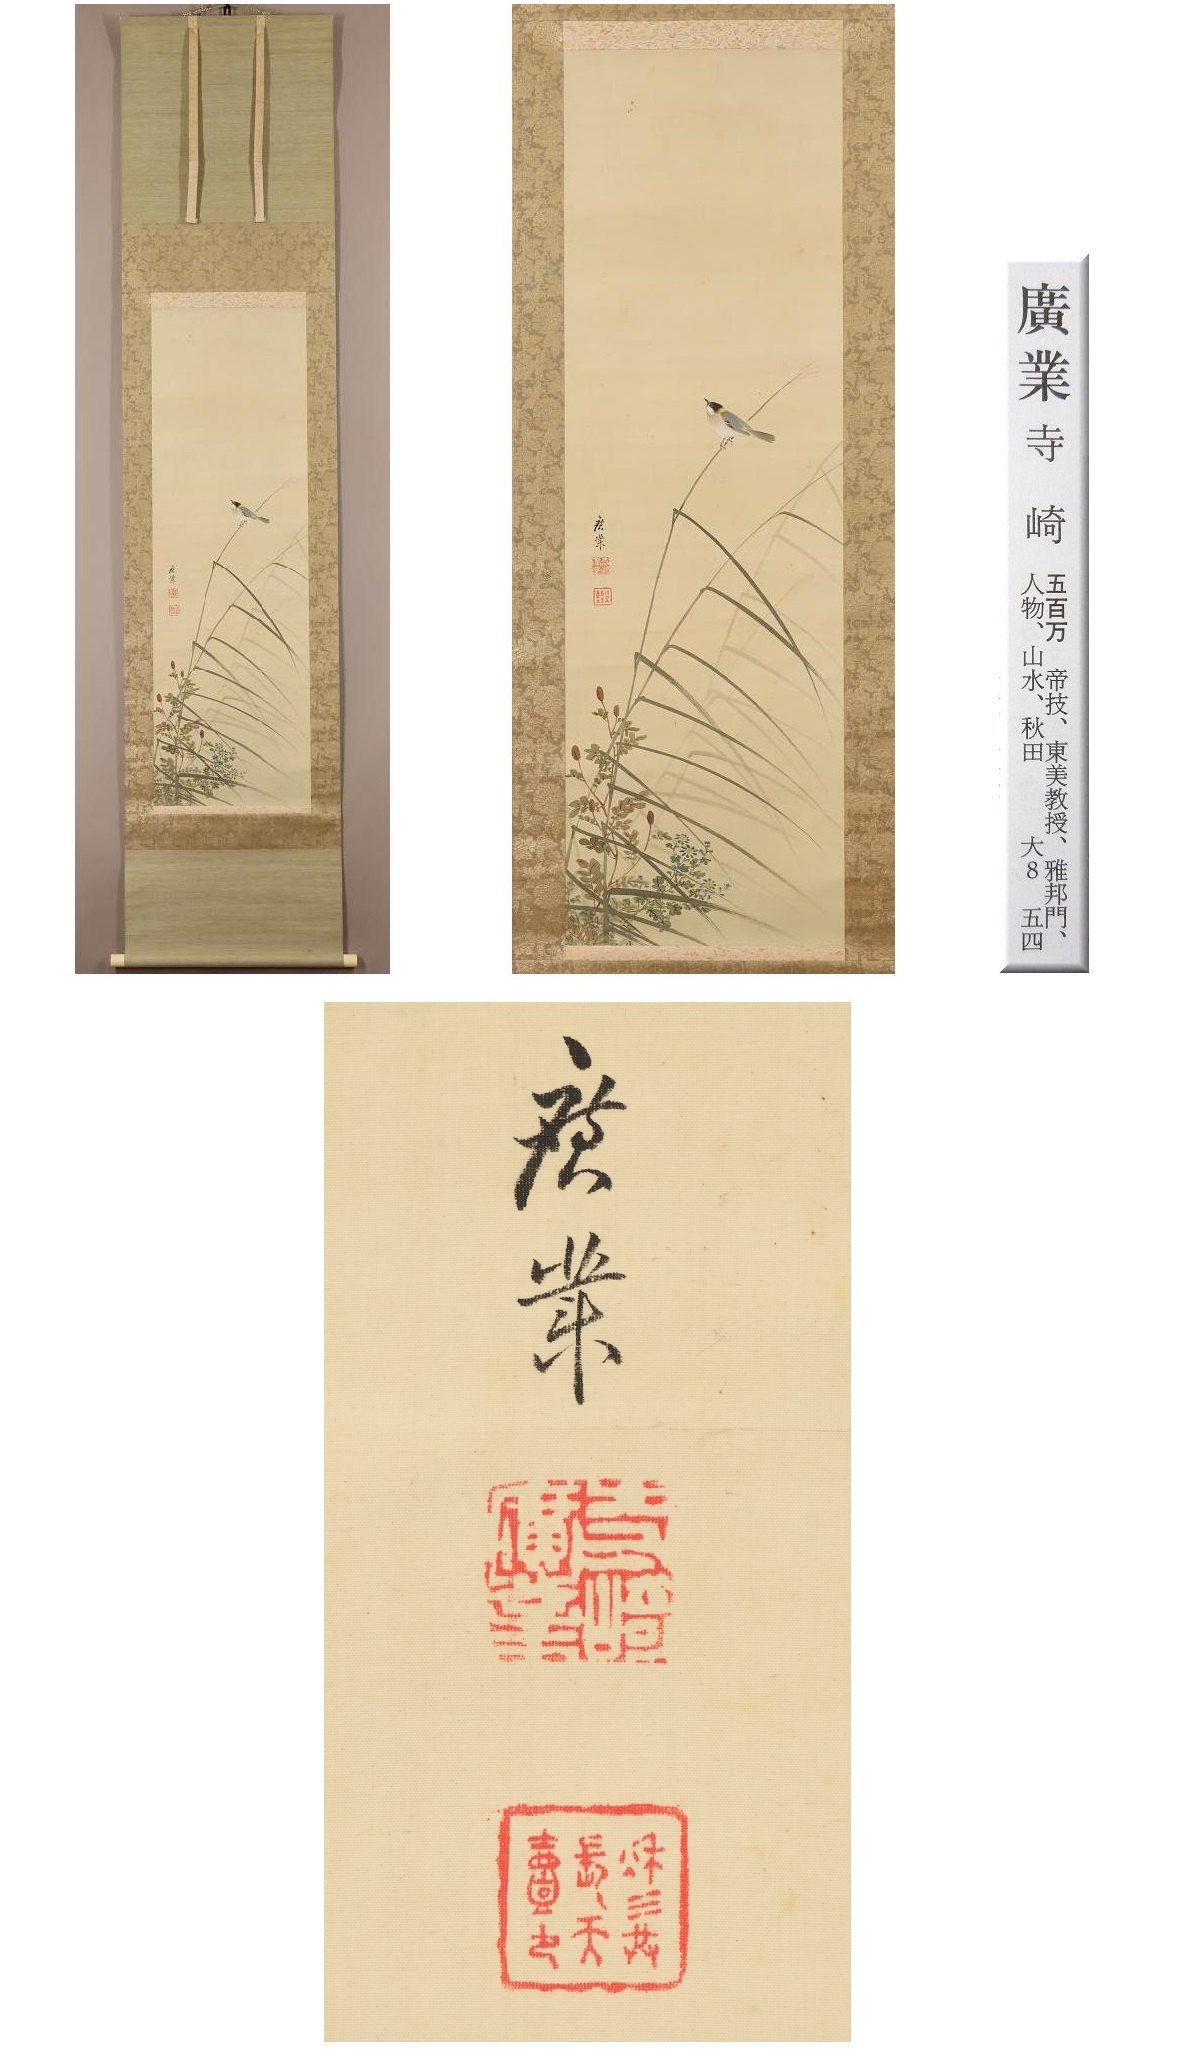 廣業
寺崎
五百万 帝技、東美教授、雅邦門、
人物、山水、秋田 大8 五四
廣業
廣業